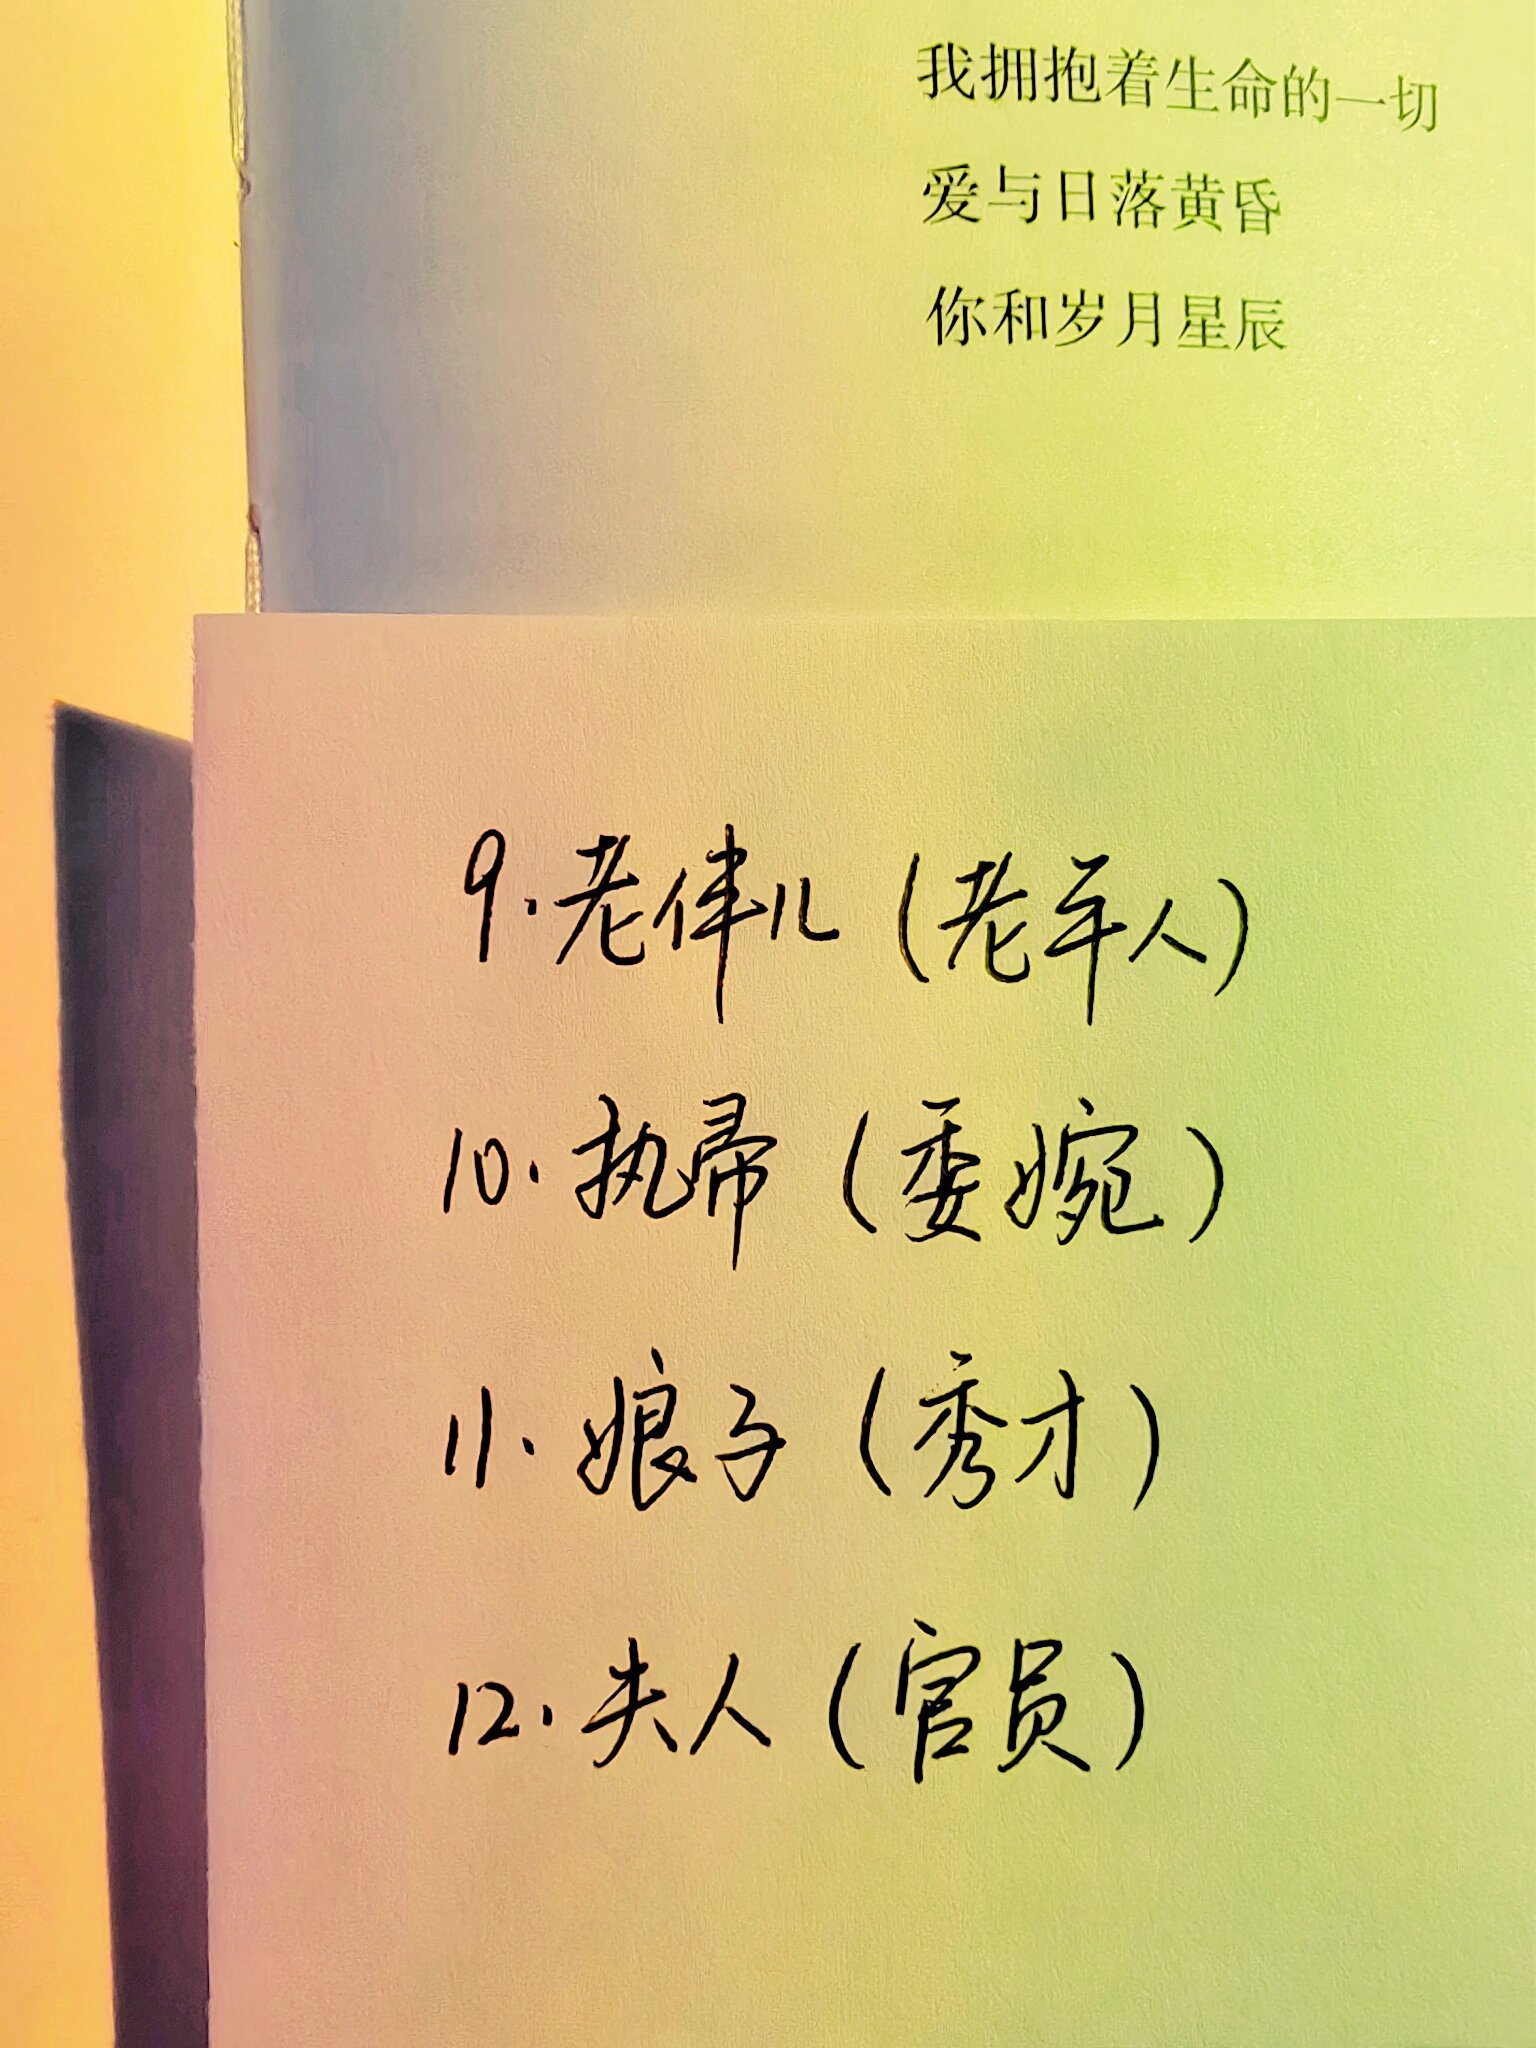 我拥抱着生命的一切
爱与日落黄昏
你和岁月星辰
9.老伴儿（老年人）
10.执帚（委婉）
11.娘子（秀才）
12.夫人（官员）